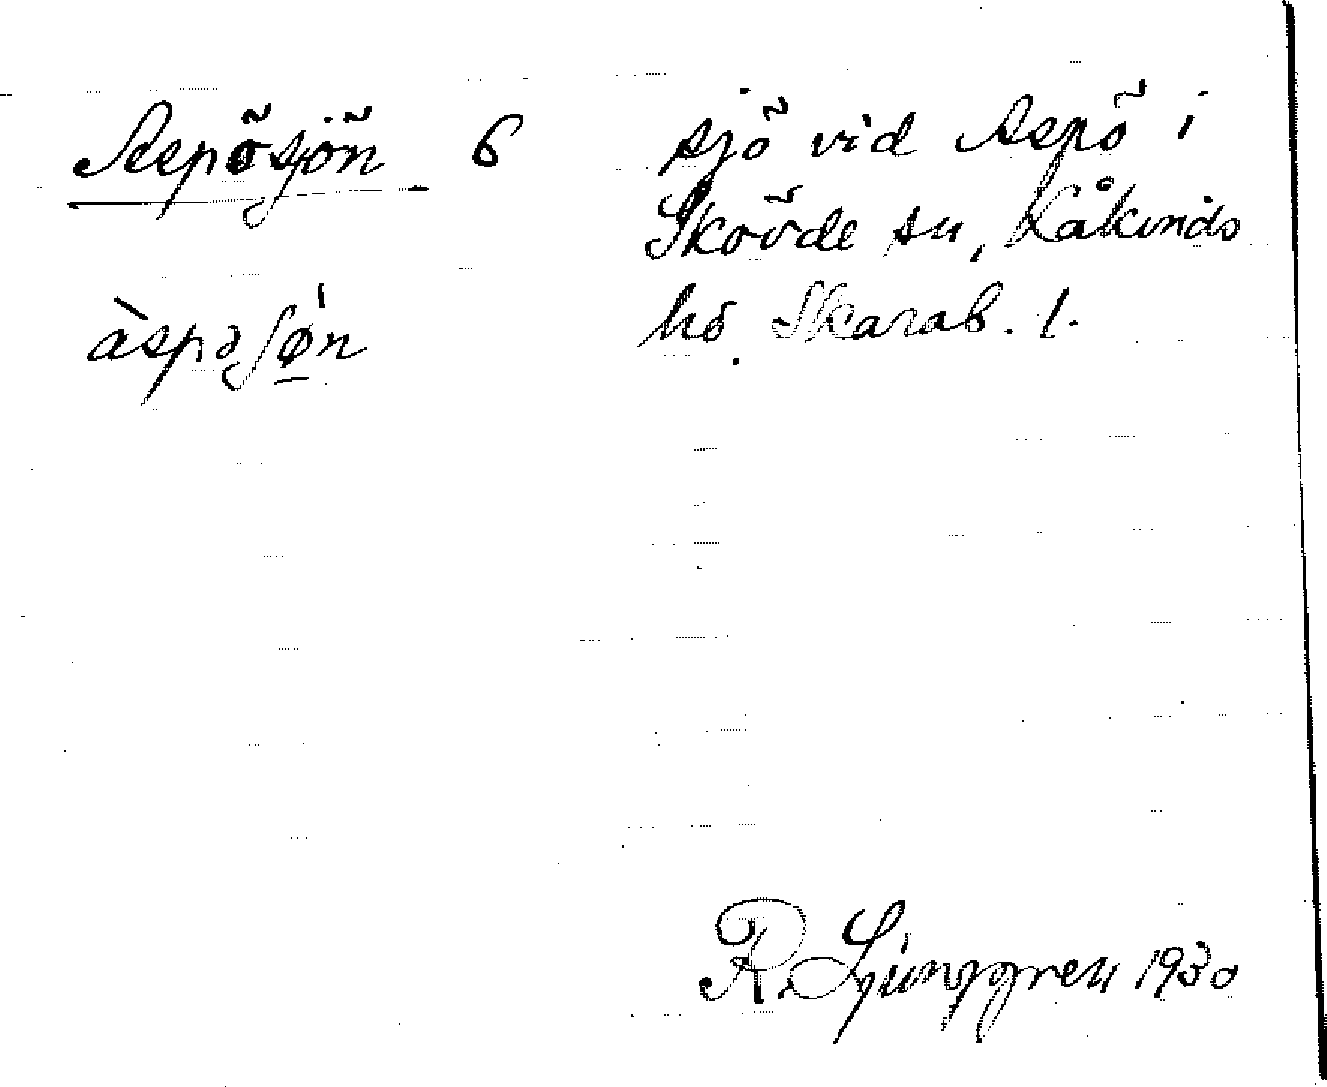 Aspösjön 6
sjö vid Aspö i
Skövde sn, Kåkinds
hd. Skarab. l.
àspəʃǿ̱n
R. Ljunggren 1930